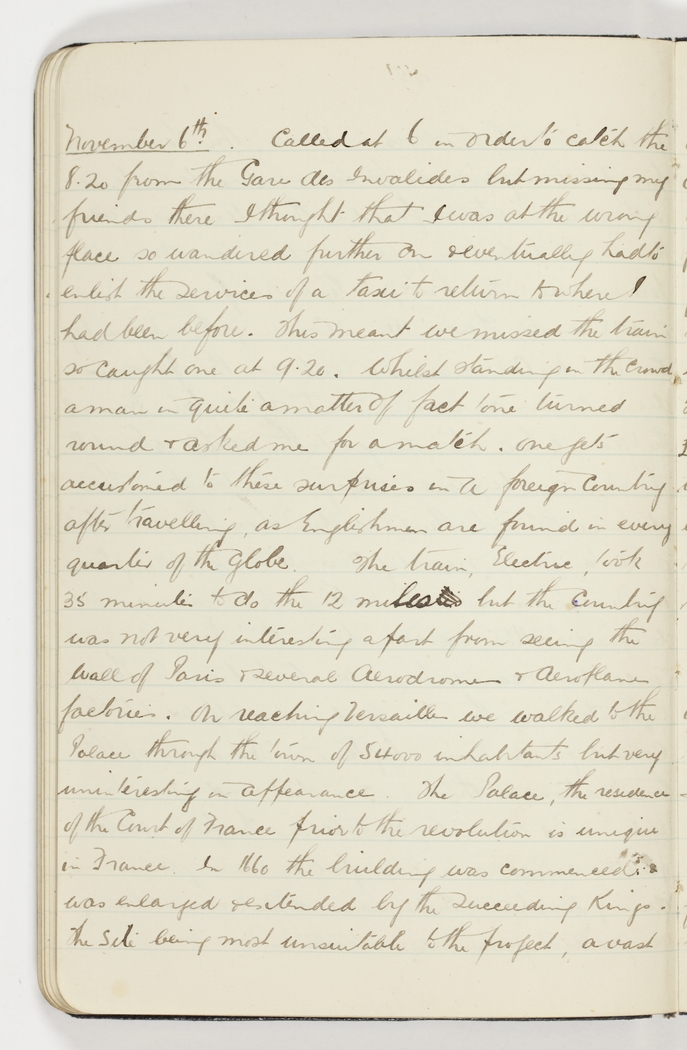 November 6th. Called at 6 in order to catch the
8.20 from the Gare des Invalides but missing my
friends there I thought that I was at the wrong
place so wandered further on & eventually had to
enlist the services of a taxi to return to where I
had been before. This meant we missed the train
so caught one at 9.20. Whilst standing in the crowd
a man in quite a matter of fact tone turned
round & asked me for a match. One gets
accustomed to these surprises in a foreign country
after travelling, as Englishmen are found in every
quarter of the Globe. The train, Electric, took
35 minutes to do the 12 miles but the Country
was not very interesting apart from seeing the
wall of Paris & several Aerodromes & Aeroplane
factories. On reaching Versailles we walked to the
Palace through the town of 54000 inhabitants but very
uninteresting in appearance. The Palace, the residence
of the Court of France prior to the revolution is unique
in France. In 1660 the building was commenced &
was enlarged & extended by the succeeding Kings.
The Site being most unsuitable to the project, a vast